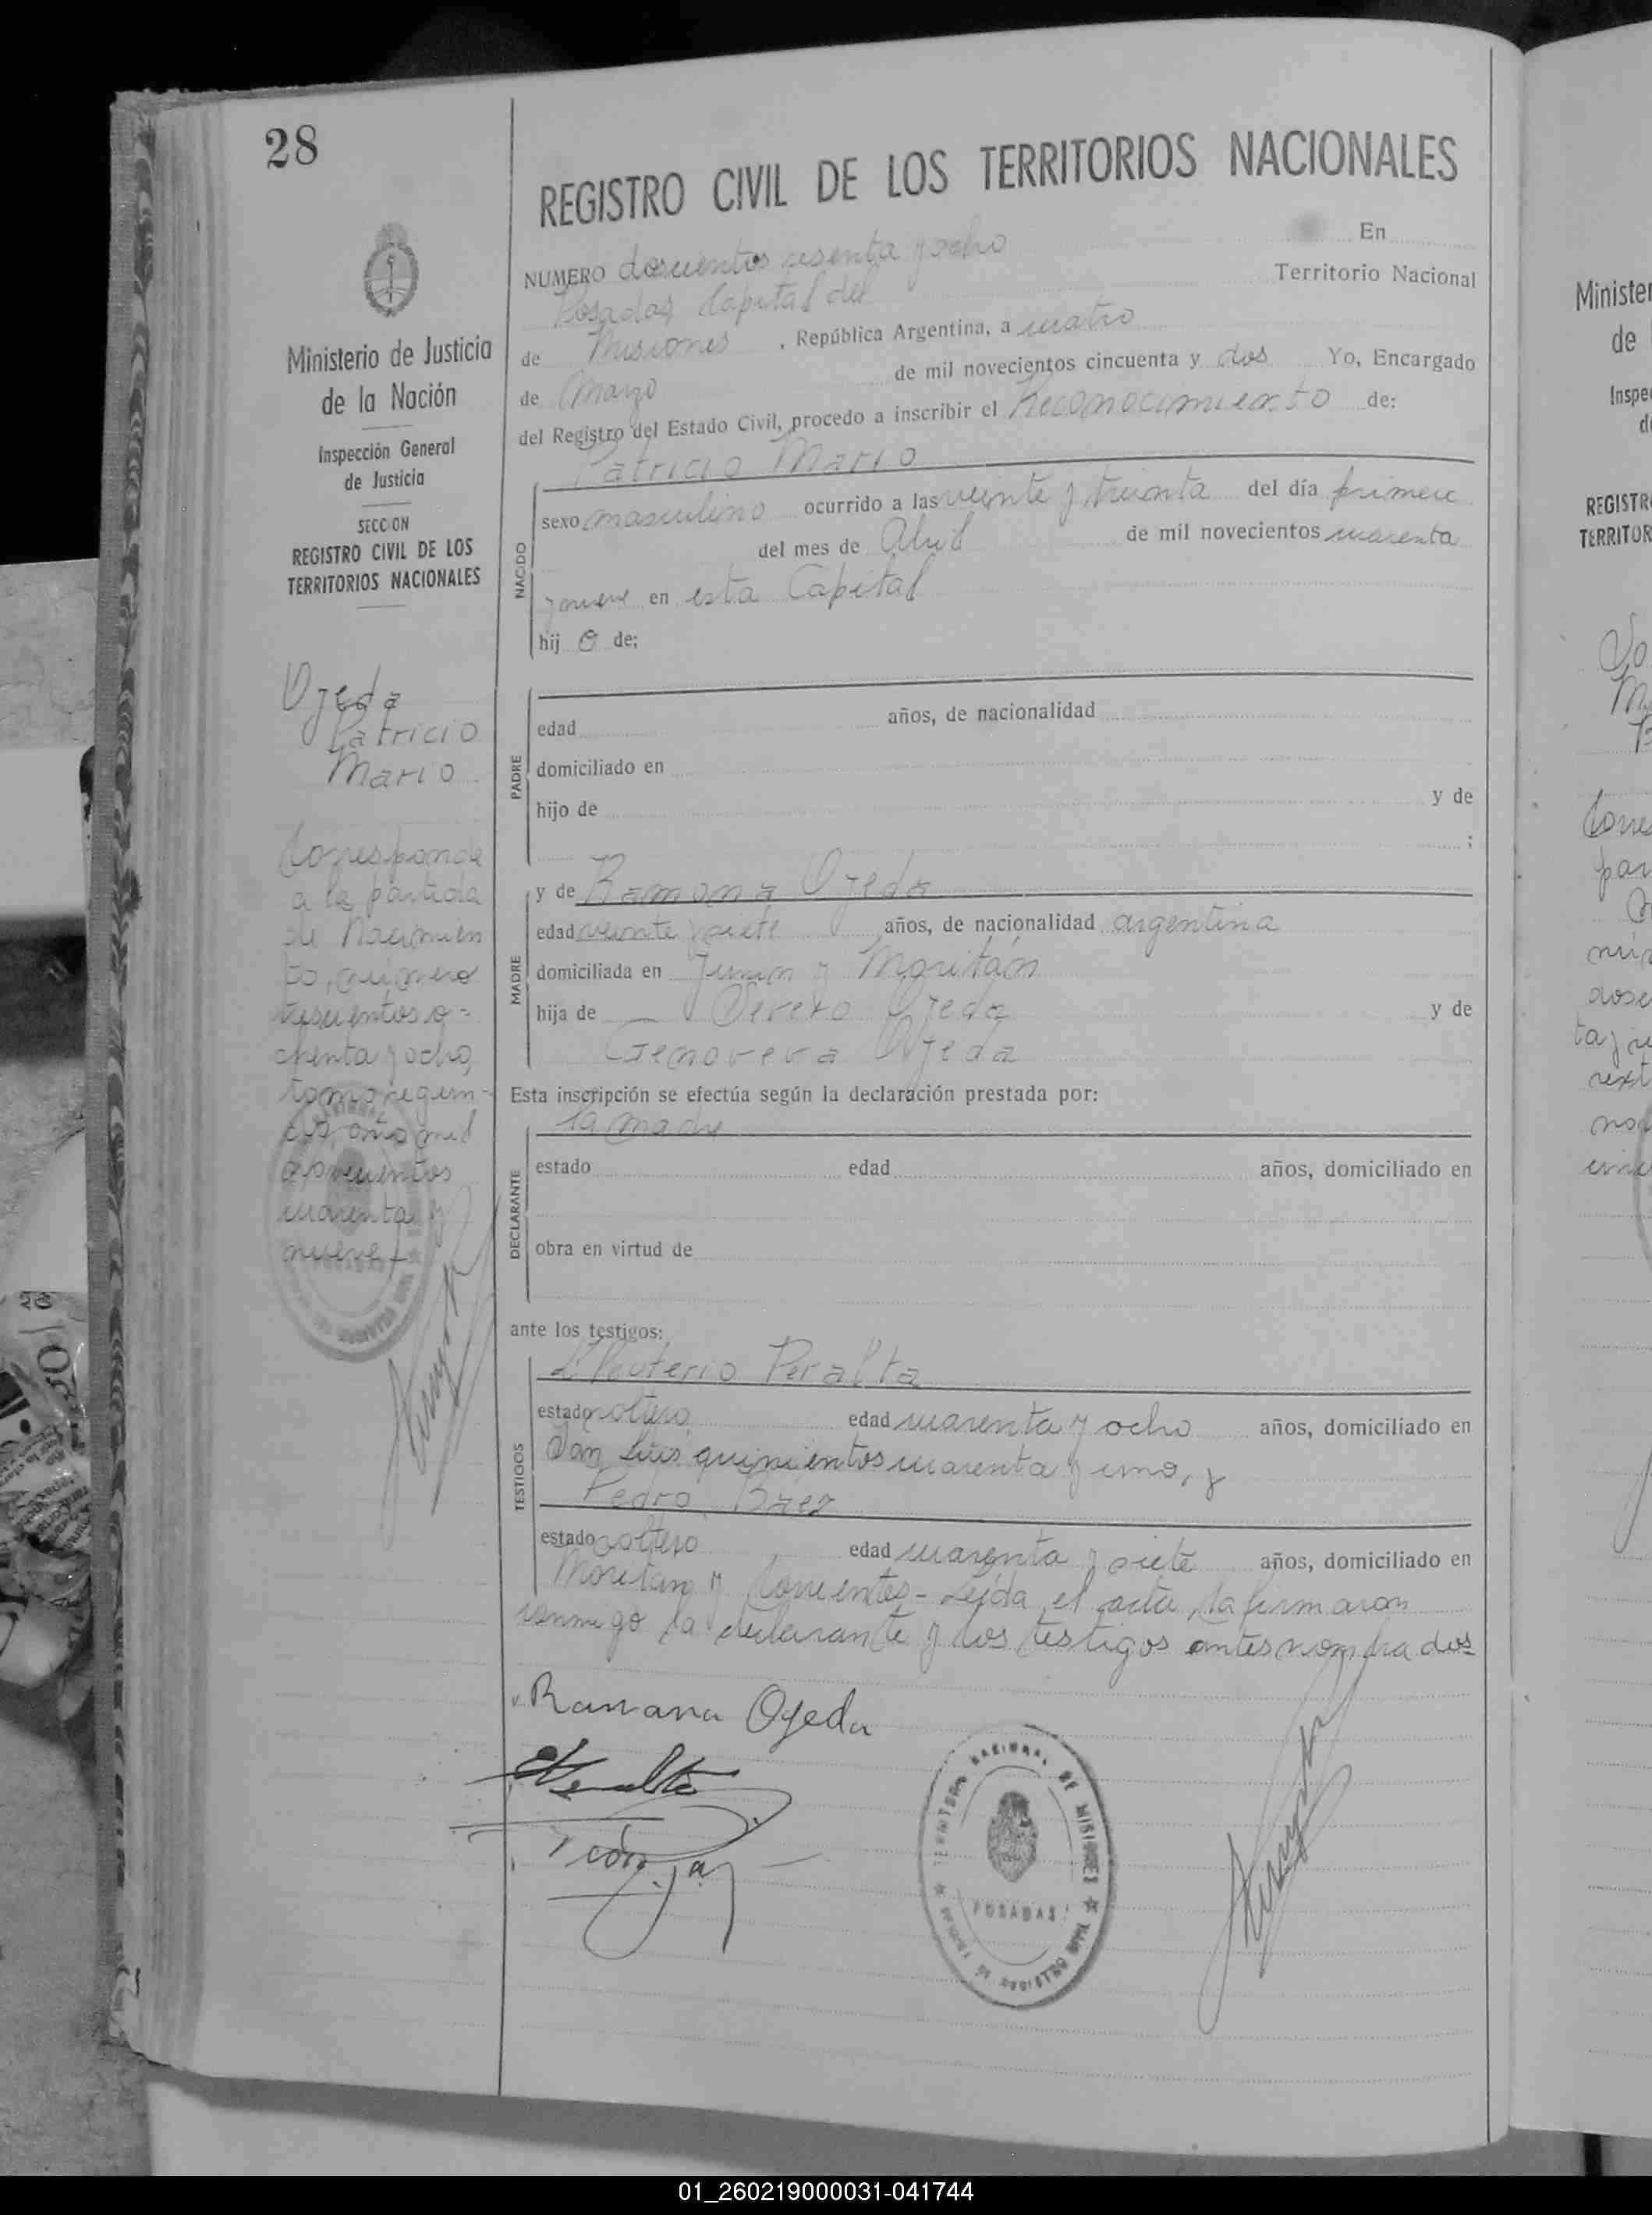 28
Ministerio de Justicia
de la Nación
Inspección General
de Justicia
SECCION
REGISTRO CIVIL DE LOS
TERRITORIOS NACIONALES
Ojeda
Patricio
Mario
Corresponde
a la partida
de Nacimien
to, número
trescientos o=
chenta y ocho,
tomo segun-
do, año mil
novecientos
cuarenta y
nueve.-
REGISTRO CIVIL DE LOS TERRITORIOS NACIONALES
NUMERO doscientos sesenta y ocho En
Posadas Capital del Territorio Nacional
de Misiones, República Argentina, a cuatro
de Marzo de mil novecientos cincuenta y dos Yo, Encargado
del Registro del Estado Civil, procedo a inscribir el Reconocimiento de:
Patricio Mario
NACIDO
sexo masculino ocurrido a las veinte y treinta del día primero
del mes de Abril de mil novecientos cuarenta
y nueve en esta Capital
hij o de;
PADRE
edad años, de nacionalidad
domiciliado en
hijo de y de
;
MADRE
y de Ramona Ojeda
edad veinte y siete años, de nacionalidad argentina
domiciliada en Junin y Moritán
hija de Severo Ojeda y de
Genoveva Ojeda
Esta inscripción se efectúa según la declaración prestada por:
la madre
DECLARANTE
estado edad años, domiciliado en
obra en virtud de
ante los testigos:
TESTIGOS
Eleuterio Peralta
estado soltero edad cuarenta y ocho años, domiciliado en
San Luis quinientos cuarenta y uno, y
Pedro Baez
estado soltero edad cuarenta y siete años, domiciliado en
Moritan y Corrientes - Leída el acta, la firmaron
conmigo la declarante y los testigos antes nombrados
Ramona Ojeda
TERRITORIO NACIONAL DE MISIONES
POSADAS
Minister
de
Inspe
REGISTR
TERRITOR
01_260219000031-041744